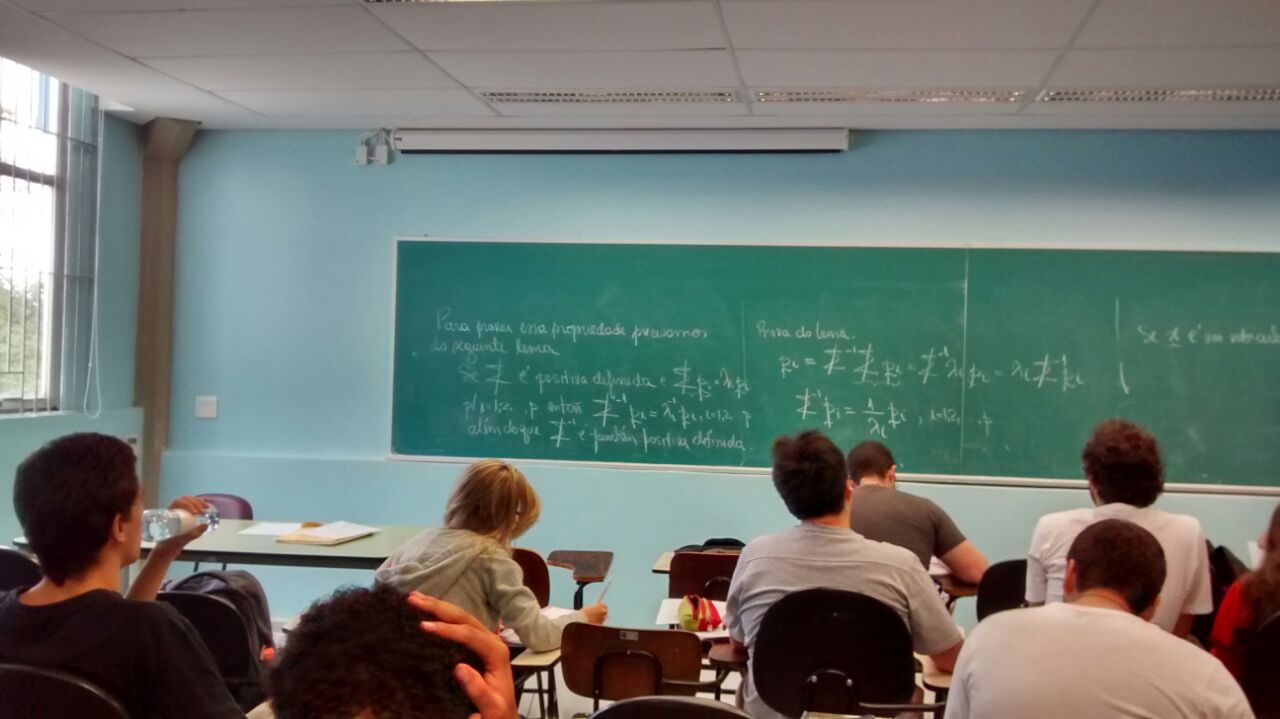 Para provar essa propriedade precisamos
do seguinte lema
Se Σ é positiva definida e Σ p_i = λ_i p_i
p/ i=1,2, , p então Σ⁻¹ p_i = λ_i⁻¹ p_i, i=1,2, p
além do que Σ⁻¹ é também positiva definida
Prova do lema.
p_i = Σ⁻¹ Σ p_i = Σ⁻¹ λ_i p_i = λ_i Σ⁻¹ p_i
Σ⁻¹ p_i = 1/λ_i p_i , i=1,2, , p
Se x é um